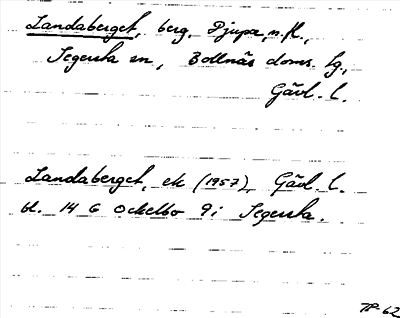 Landaberget, berg, Djupa, n.fl.,
Segersta sn, Bollnäs doms. tg.,
Gävl. l.
Landaberget, ek (1957), Gävl. l.
bl. 14 G Ockelbo 9i Segersta.
-62